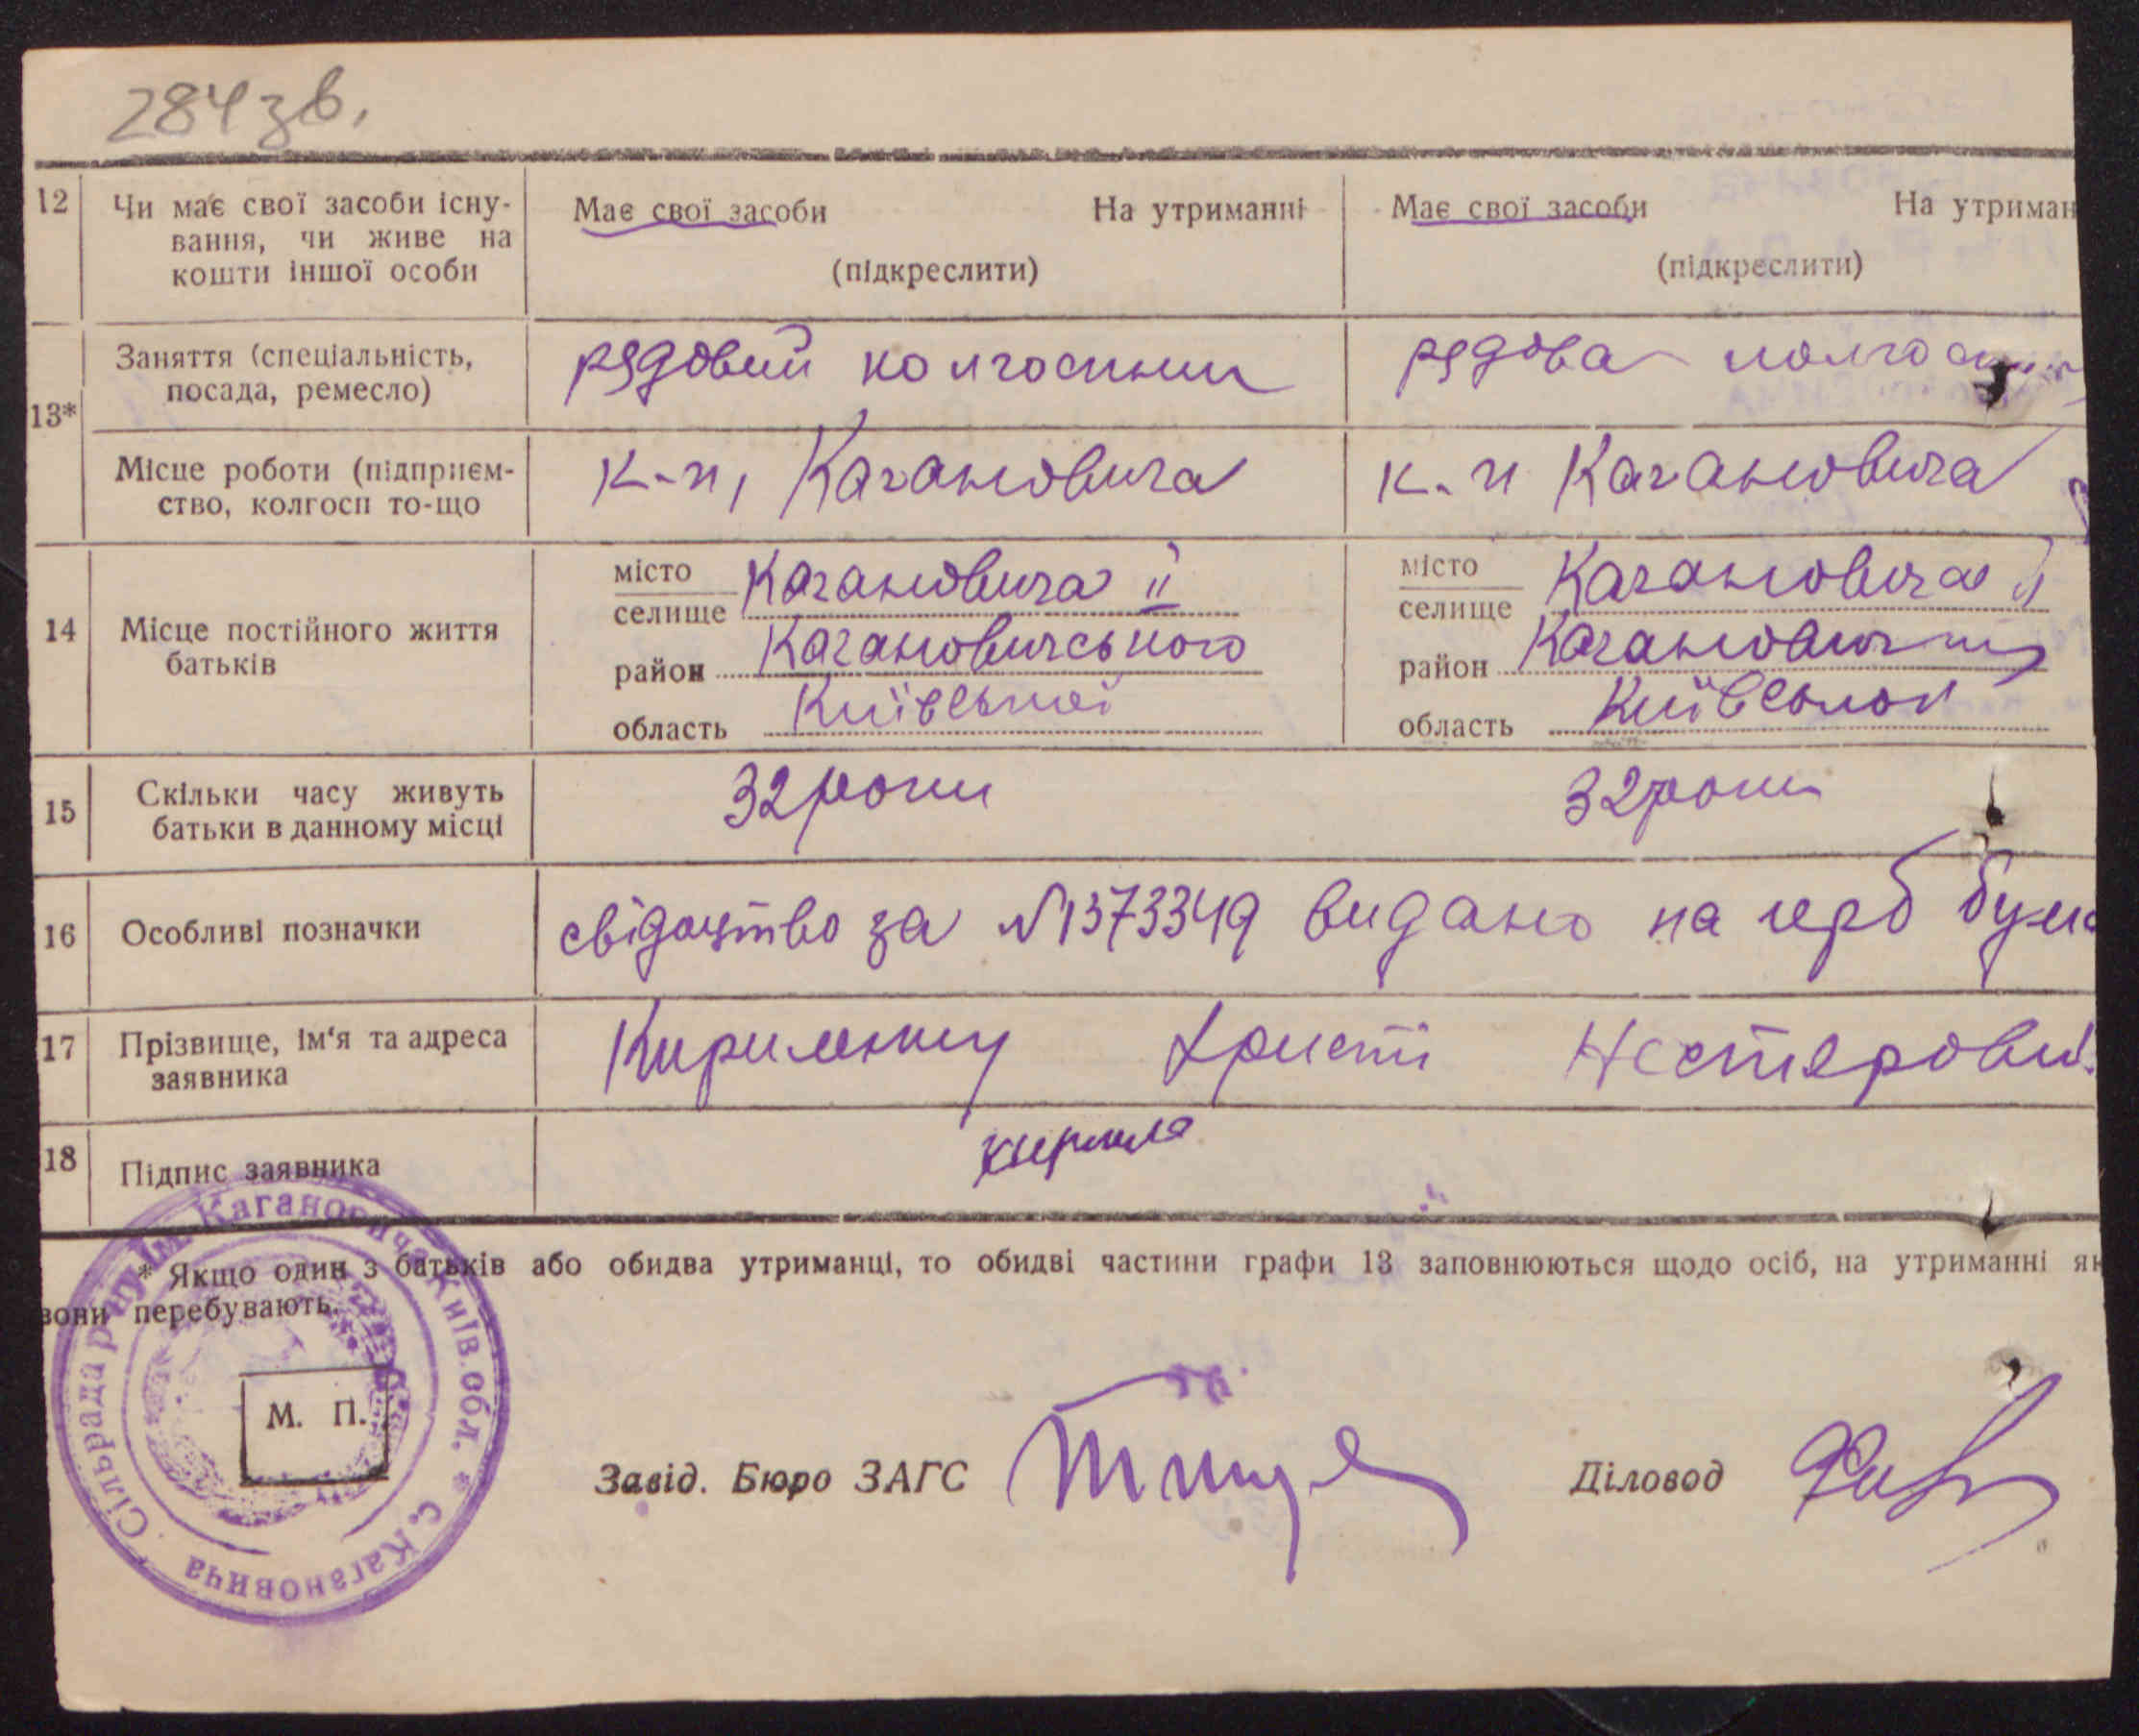 284 зв.
12 Чи має свої засоби існу- Має свої засоби На утриманні Має свої засоби На утриман
вання, чи живе на
кошти іншої особи (підкреслити) (підкреслити)
Заняття (спеціальність, рядовий колгоспник рядова колгосп
посада, ремесло)
13*
Місце роботи (підприєм- к-п, Кагановича к-п Кагановича
ство, колгосп то-що
місто Кагановича ІІ місто Кагановича ІІ
селище селище
14 Місце постійного життя район Кагановичського район
батьків
область Київської область Київської
15 Скільки часу живуть 32 роки 32 роки
батьки в данному місці
16 Особливі позначки свідоцтво за №1373349 видано на герб бума
17 Прізвище, ім'я та адреса Кириленку Христі Нестерови
заявника
18 Підпис заявника
* Якщо один з батьків або обидва утриманці, то обидві частини графи 13 заповнюються щодо осіб, на утриманні як
вони перебувають.
М. П.
Завід. Бюро ЗАГС Діловод
Сільрада р-ну Ім. Кагановича Київ. обл. * с. Кагановича